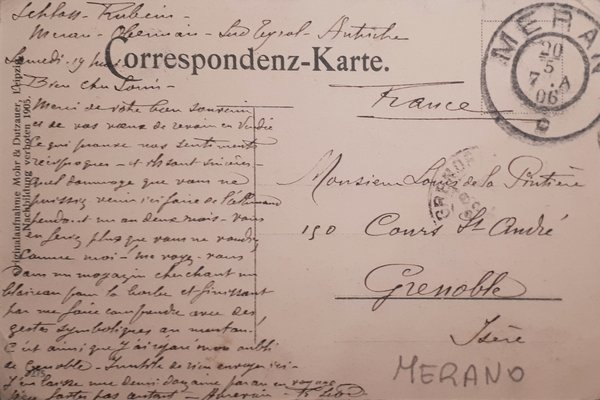 Schloss Rubein -
Meran - Obermais - Sud Tyrol - Autriche
Samedi 19 Mai
Correspondenz-Karte.
MERAN
20
5
7 A
06
c
Bien cher Louis -
Merci de votre bon souvenir
et de vos vœux de revoir en Vendée
Ce qui prouve nos sentiments
réciproques - et
quel dommage que vous ne
puissiez venir ici faire de l'allemand
pendant un an deux mois - vous
en feriez plus que vous ne voudriez
Comme moi! Me voyez-vous
Dans un magasin cherchant un
blaireau pour la barbe et finissant
par me faire comprendre avec des
gestes symboliques au menton!
C'est ainsi que j'ai réparé mon oubli
de Grenoble - Inutile de rien envoyer ici -
J'en laisse une demi douzaine par an en voyage
pas autant -
France
Monsieur Louis de la
150 Cours St André
Grenoble
Isère
MERANO
Originalaufnahme Mohr & Dutzauer, Leipzig
Nachbildung verboten 1905.